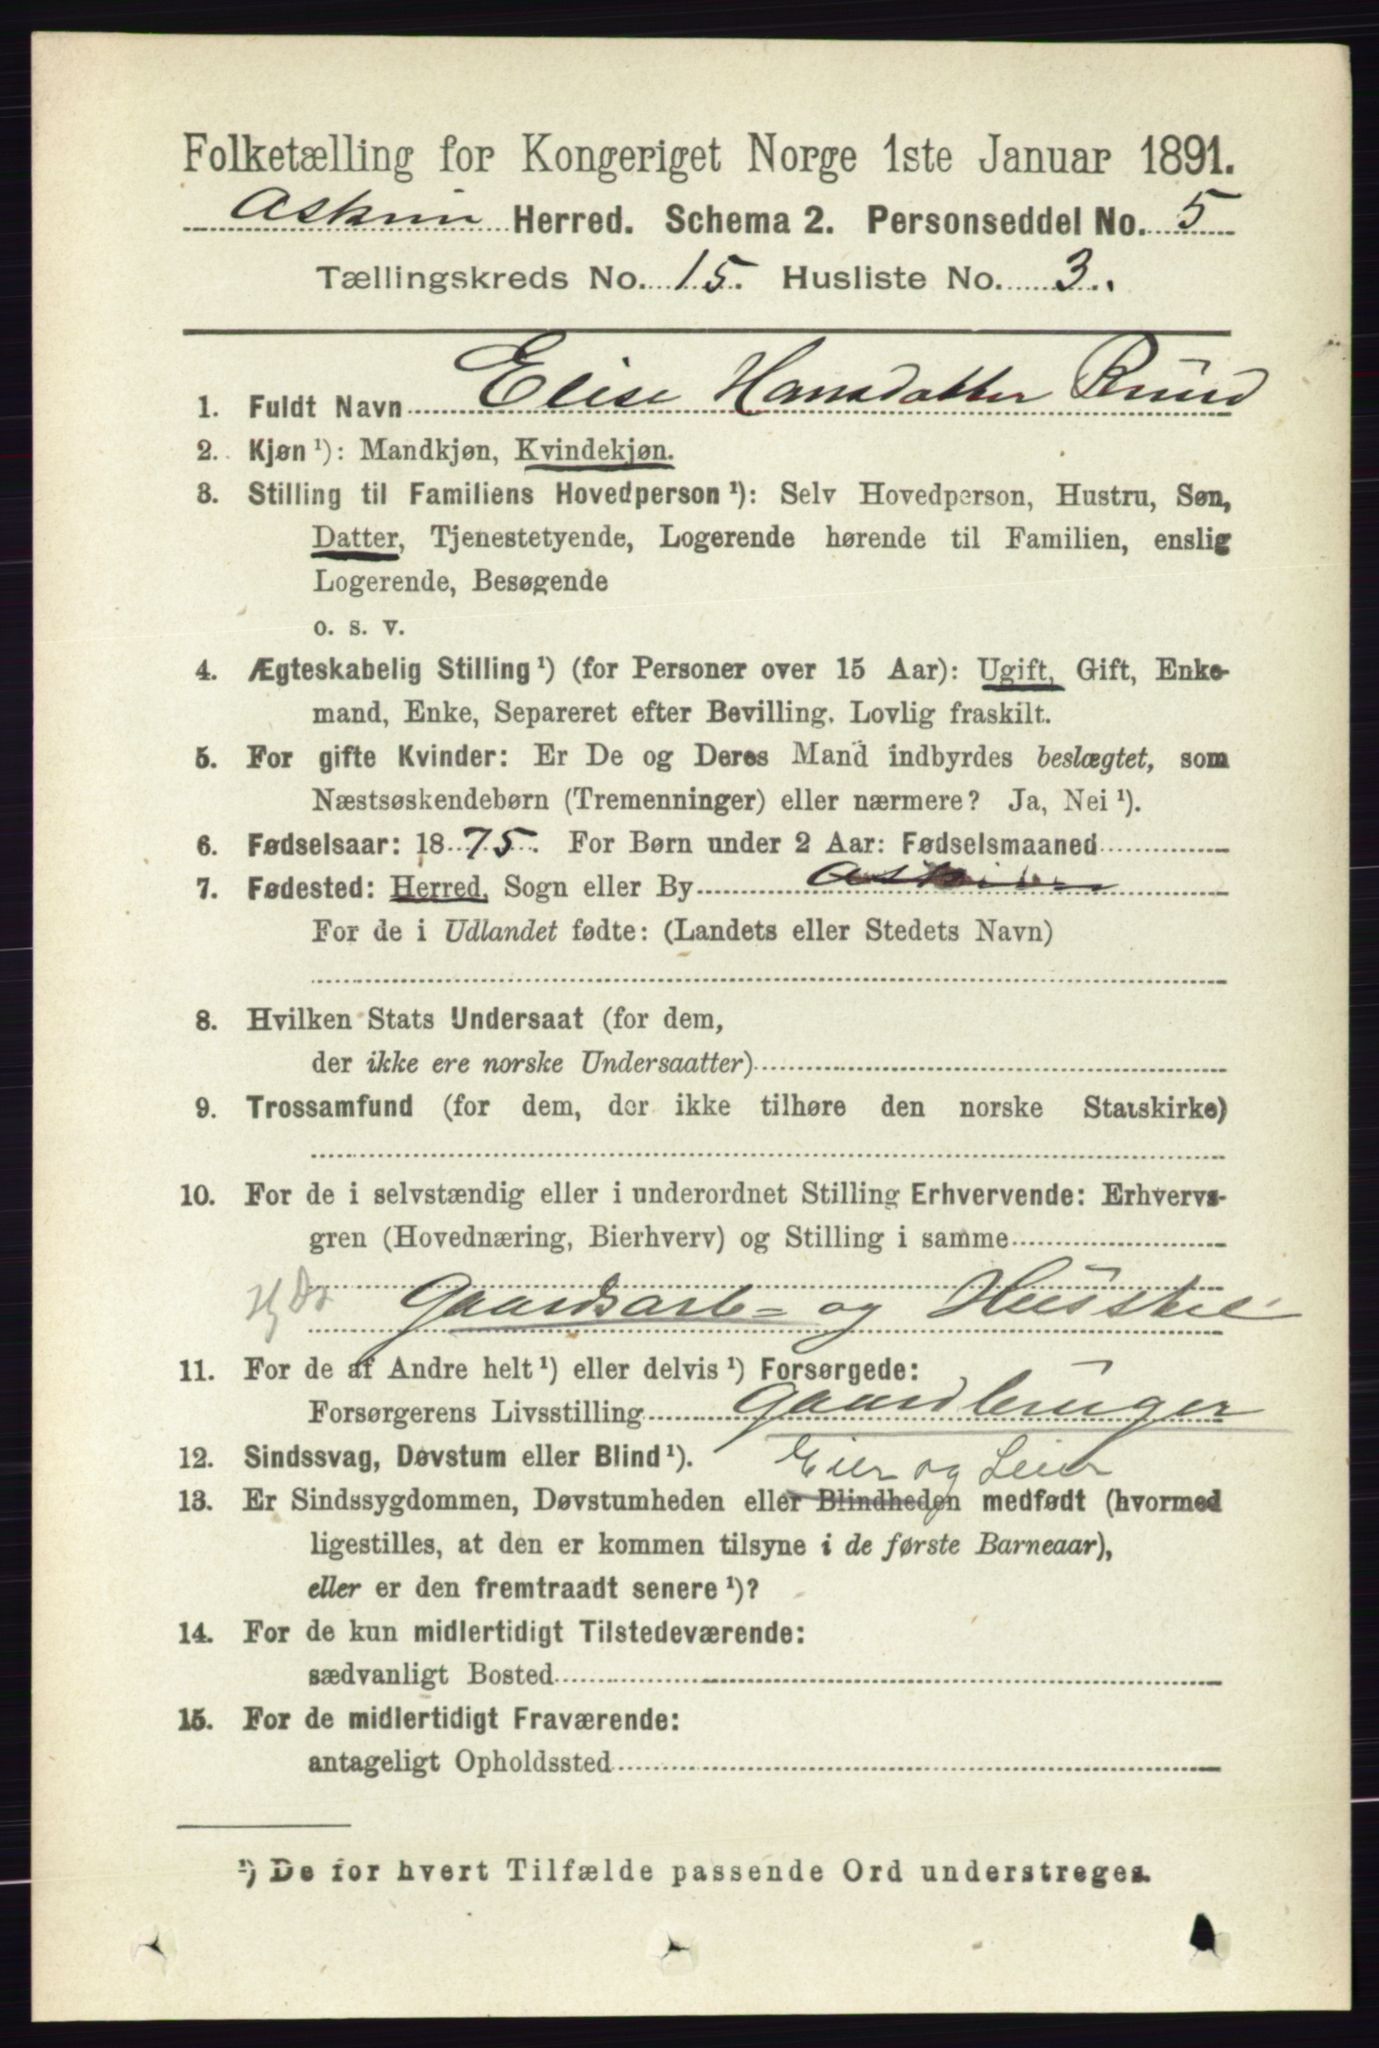 Folketælling for Kongeriget Norge 1ste Januar 1891.
Askim Herred. Schema 2. Personseddel No. 5
Tællingskreds No. 15. Husliste No. 3.
1. Fuldt Navn Elise Hansdatter Ruud
2. Kjøn ¹): Mandkjøn, Kvindekjøn.
3. Stilling til Familiens Hovedperson ¹): Selv Hovedperson, Hustru, Søn,
Datter, Tjenestetyende, Logerende hørende til Familien, enslig
Logerende, Besøgende
o. s. v.
4. Ægteskabelig Stilling ¹) (for Personer over 15 Aar): Ugift, Gift, Enke-
mand, Enke, Separeret efter Bevilling. Lovlig fraskilt.
5. For gifte Kvinder: Er De og Deres Mand indbyrdes beslægtet, som
Næstsøskendebørn (Tremenninger) eller nærmere? Ja, Nei ¹).
6. Fødselsaar: 1875. For Børn under 2 Aar: Fødselsmaaned
7. Fødested: Herred, Sogn eller By Askim
For de i Udlandet fødte: (Landets eller Stedets Navn)
8. Hvilken Stats Undersaat (for dem,
der ikke ere norske Undersaatter)
9. Trossamfund (for dem, der ikke tilhøre den norske Statskirke)
10. For de i selvstændig eller i underordnet Stilling Erhvervende: Erhvervs-
gren (Hovednæring, Bierhverv) og Stilling i samme
Gaardsarb= og Husstel
11. For de af Andre helt ¹) eller delvis ¹) Forsørgede:
Forsørgerens Livsstilling Gaardbruger
12. Sindssvag, Døvstum eller Blind ¹). Eier og Leier
13. Er Sindssygdommen, Døvstumheden eller Blindheden medfødt (hvormed
ligestilles, at den er kommen tilsyne i de første Barneaar),
eller er den fremtraadt senere ¹)?
14. For de kun midlertidigt Tilstedeværende:
sædvanligt Bosted
15. For de midlertidigt Fraværende:
antageligt Opholdssted
¹) De for hvert Tilfælde passende Ord understreges.